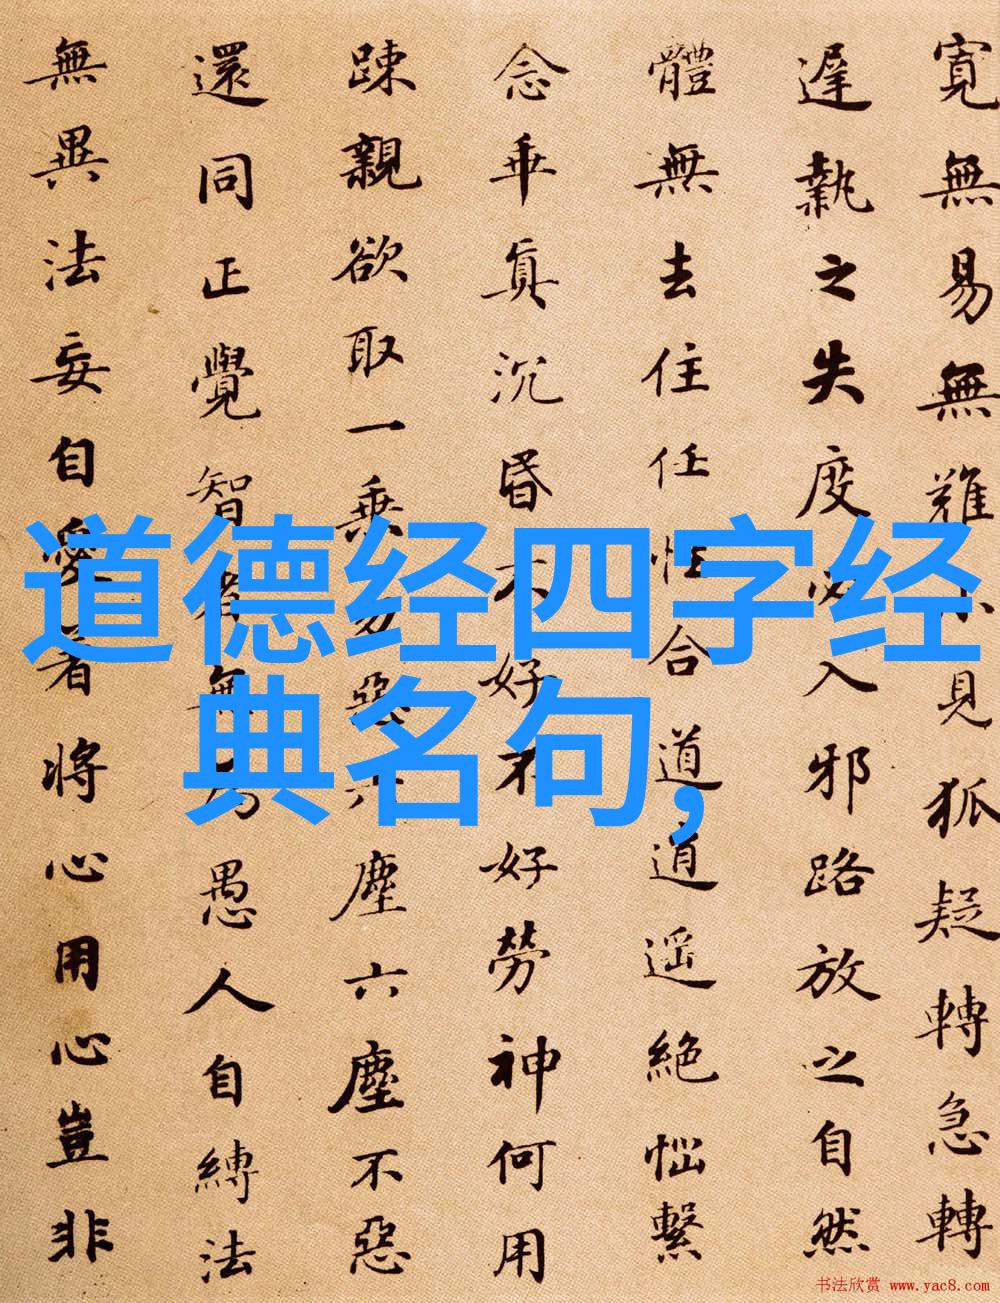 寬無易無難小見狐疑轉急轉
遲執之失度必入邪路放之自然
體無去住任性合道逍遥絶惱繫
念乖真沉昏不好不好勞神何用
踈親欲取一乗勿惡六塵六塵不惡
還同正覺智者無為愚人自縛法
無異法妄自愛著將心用心豈非
道德经四字经
典名句,
书法欣赏 www.yac8.com